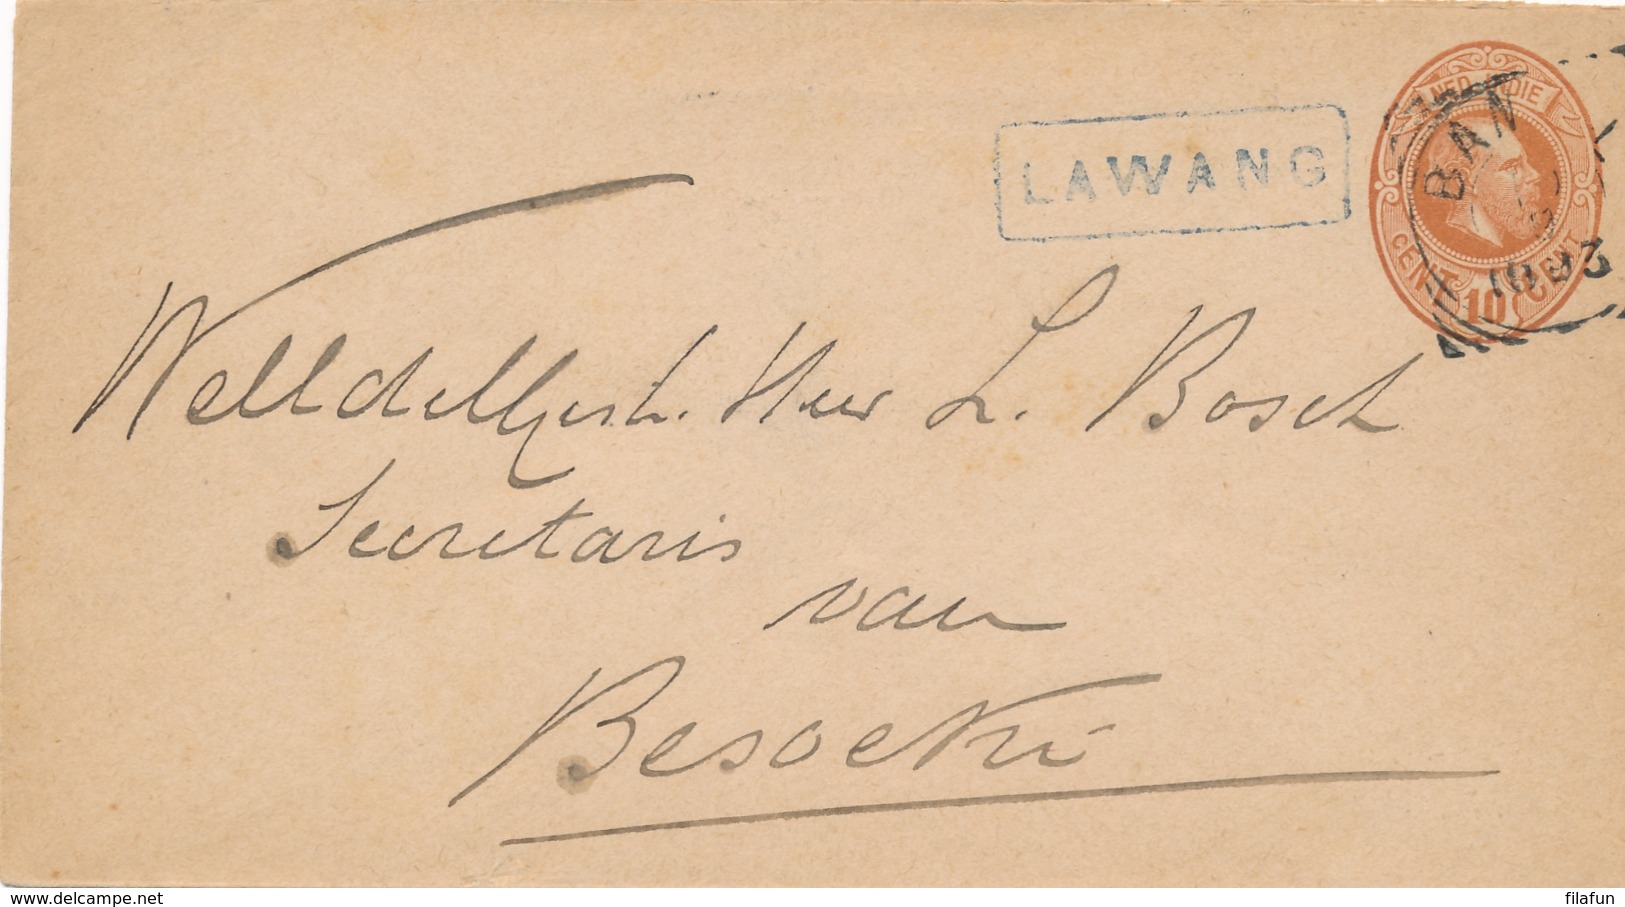 LAWANG
NED. INDIE
BAN
1893
CENT 10 CENT
Welldelgest. Heer L. Bosch
Secretaris
van
Besoeki
www.delcampe.net
filafun